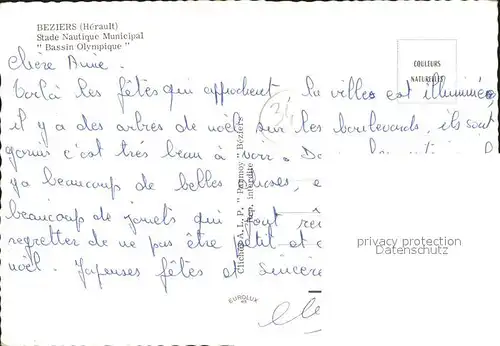 BEZIERS (Hérault)
Stade Nautique Municipal
" Bassin Olympique "
COULEURS
NATURELLES
chère Amie.
Voilà les fêtes qui approchent la villes est illuminée
il y a des arbres de noël sur les boulevards, ils sont
garnis c'est très beau à voir. D
ya beaucoup de belles choses, e
beaucoup de jouets qui font
regretter de ne pas être petit et c
noël. Joyeuses fêtes et sincère
Clichés A. L. P. " Pouzoy " Béziers
Rep. interdite
EUROLUX
privacy protection
Datenschutz